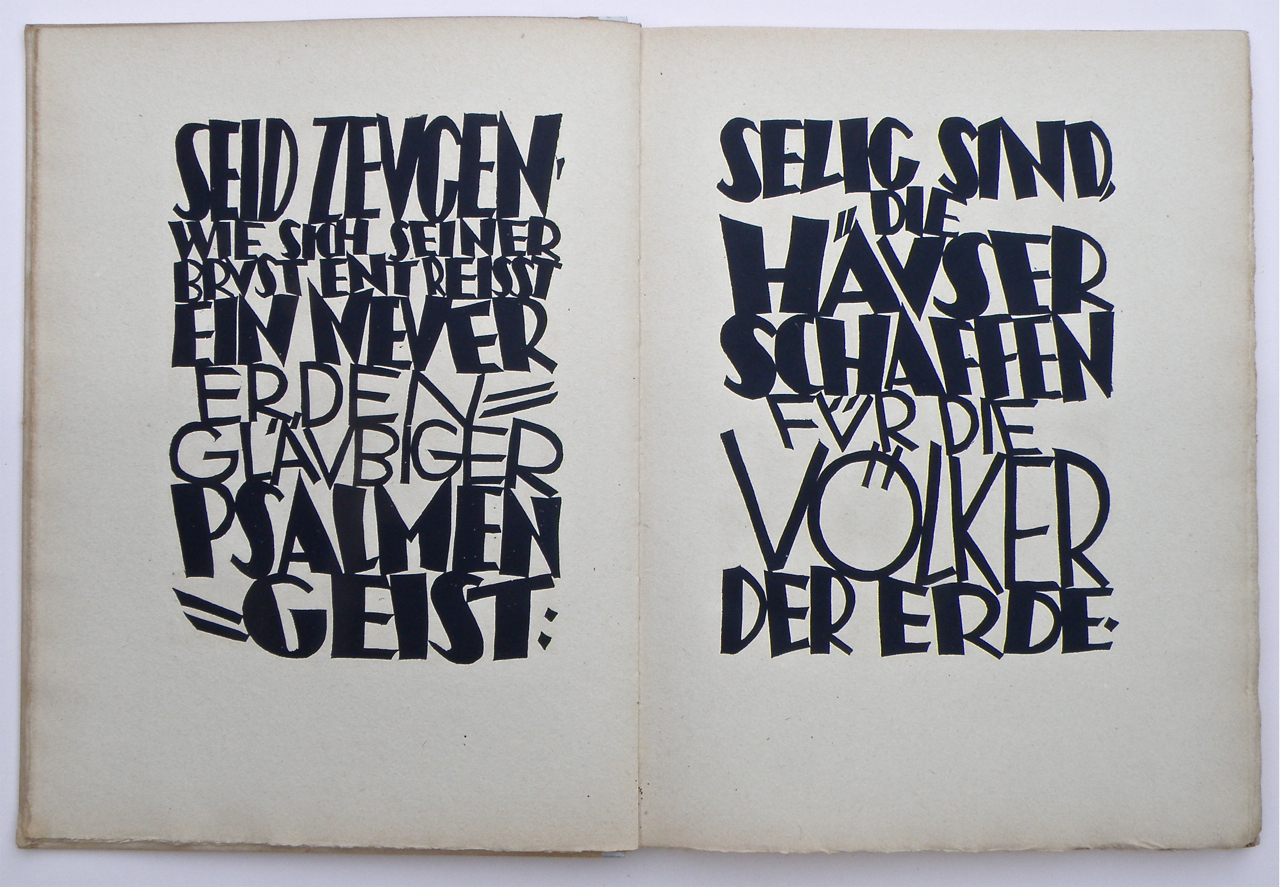 SEID ZEVGEN,
WIE SICH SEINER
BRVST ENTREISST
EIN NEVER
ERDEN=
GLÄVBIGER
PSALMEN
=GEIST:
SELIG SIND,
DIE
HÄVSER
SCHAFFEN
FÜR DIE
VÖLKER
DER ERDE·